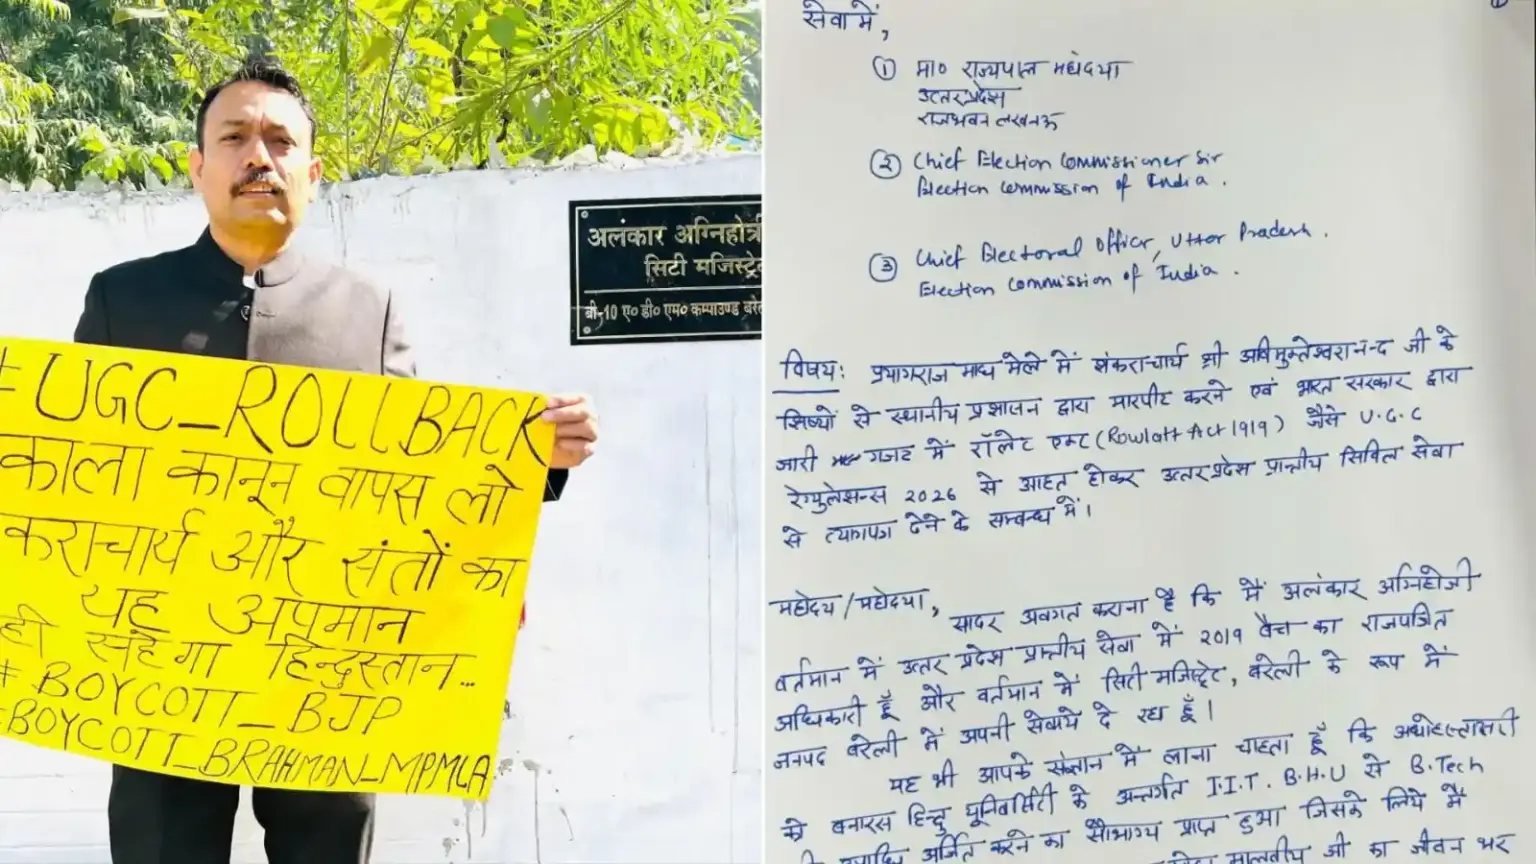 अलंकार अग्निहोत्री
सिटी मजिस्ट्रेट
बी-10 ए० डी० एम० कम्पाउण्ड बरे
#UGC_ROLLBACK
काला कानून वापस लो
कराचार्य और संतों का
यह अपमान
ही सहेगा हिन्दुस्तान...
#BOYCOTT_BJP
#BOYCOTT_BRAHMAN_MPMLA
सेवा में,
① मा० राज्यपाल महोदया
उत्तर प्रदेश
राजभवन लखनऊ
② Chief Election Commissioner Sir
Election Commission of India.
③ Chief Electoral Officer, Uttar Pradesh.
Election Commission of India.
विषय: प्रयागराज माघ मेले में शंकराचार्य श्री अविमुक्तेश्वरानन्द जी के
शिष्यों से स्थानीय प्रशासन द्वारा मारपीट करने एवं भारत सरकार द्वारा
जारी गजट में रॉलेट एक्ट (Rowlatt Act 1919) जैसे U.G.C
रेग्युलेसन्स 2026 से आहत होकर उत्तर प्रदेश प्रान्तीय सिविल सेवा
से त्यागपत्र देने के सम्बन्ध में।
महोदय/महोदया,
सादर अवगत कराना है कि मैं अलंकार अग्निहोत्री
वर्तमान में उत्तर प्रदेश प्रान्तीय सेवा में 2019 बैच का राजपत्रित
अधिकारी हूँ और वर्तमान में सिटी मजिस्ट्रेट, बरेली के रूप में
जनपद बरेली में अपनी सेवायें दे रहा हूँ।
यह भी आपके संज्ञान में लाना चाहता हूँ कि अधोहस्ताक्षरी
को बनारस हिन्दु यूनिवर्सिटी के अन्तर्गत I.I.T. B.H.U से B.Tech
अर्जित करने का सौभाग्य प्राप्त हुआ जिसके लिये मैं
मालवीय जी का जीवन भर